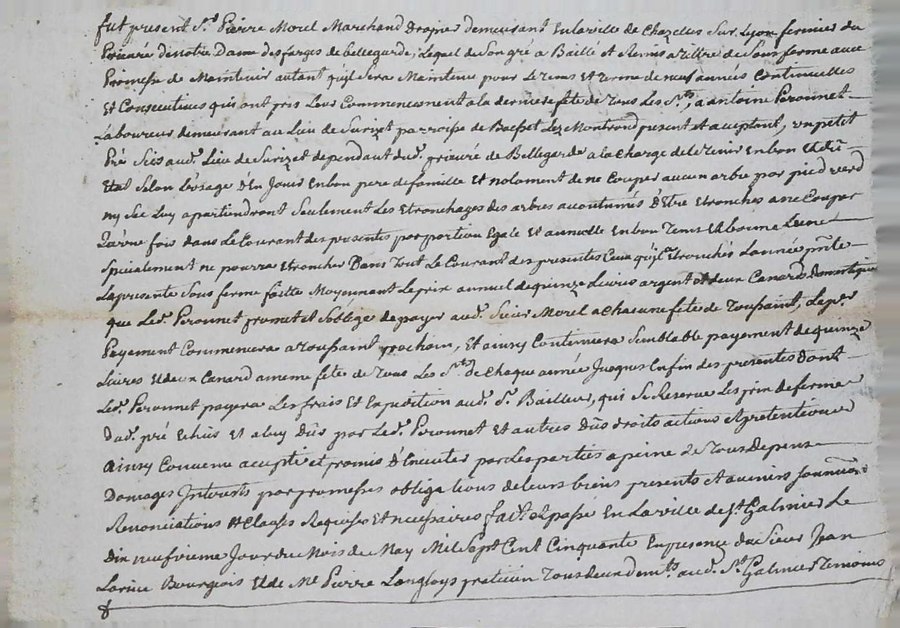 fut present Sr. Pierre Morel Marchand drapier demeurant En la ville de Chazelles Sur Lyon fermier du
Prieuré de notre Dame des farges de bellegarde, Lequel de Son gré a Baillé et Remis a tiltre de Sous ferme avec
Promesse de Maintenir autant quil Sera Maintenu pour Le tems et terme de neuf années Continuelles
Et Consecutives qui ont pris Leur Commencement a la derniere fete de Tous Les Sts, a antoine Peronnet
Laboureur demeurant au Lieu de Surizet parroisse de Boisset Les Montrond present et acceptant, un petit
Pré Scis aud. Lieu de Surizet dependant dud. prieuré de Bellegarde a la Charge de le tenir En bon Et du
Etat Selon L'usage d'En Jouir En bon pere de famille Et notament de ne Couper aucun arbre par pied verd
ny Sec Luy apartiendront Seulement Les Etronchages des arbres acoutumés d'Etre Etronches a ne Couper
Qu'une fois dans Le Courant des presentes par portion Egale Et annuelle En bon Tems Et bonne Lune
Specialement ne pourra Etroncher Dans Tout Le Courant des presentes Ceux qu'il Etronchés L'année
La presente Sous ferme faitte Moyennant Le prix annuel de quinze Livres argent Et deux Canards domestiques
que Led. Peronnet promet et S'oblige de payer aud. Sieur Morel a Chacune fete de Toussaint, Le per
Payement Commencera a Toussaint prochain, Et ainsy Continuera Semblable payement de quinze
Livres Et deux Canards a meme fete de Tous Les Sts de Chaque année Jusques En fin des presentes dont
Led. Peronnet payera Les frais Et Expedition aud. Sr. Bailleur, qui Se Reserve Les prix de ferme
Dud. pré Echus Et a luy Dus par Led. Peronnet Et autres Dus droits actions Et pretentions
Ainsy Convenu accepté et promis d'Executer par Les parties a peine de Tous Depens
Domages Interests par promesses obligations de leurs biens presents Et avenirs
Renonciations Et Clauses Requises Et necessaires fait Et passé En La ville de St Galmier Le
Dix neufvieme Jour du Mois de May Mil Sept Cent Cinquante En presence du Sieur Jean
Bourgeois Et de Me Pierre Langloys praticien Tous deux demts. aud. St Galmier Temoins